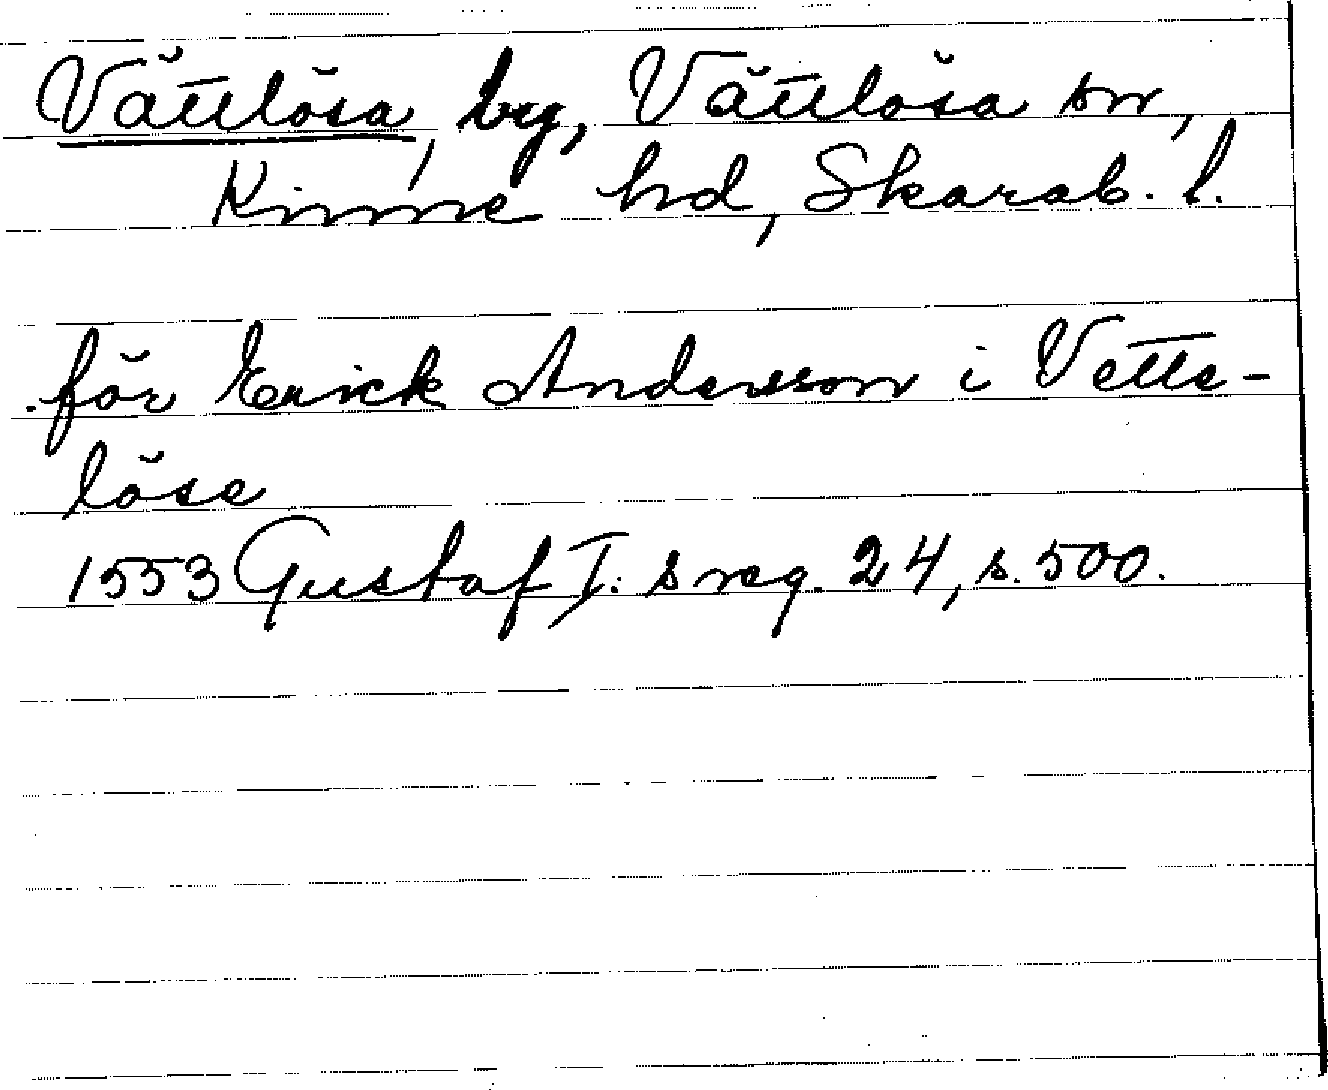 Vättlösa, by, Vättlösa sn,
Kinne hd, Skarab. l.
för Erick Andersson i Vette-
löse
1553 Gustaf I:s reg. 24, s. 500.